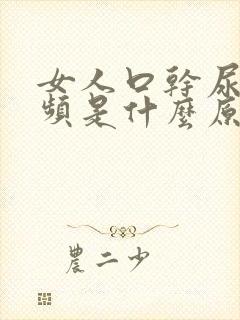 女人口幹尿
頻是什麼原
農二少